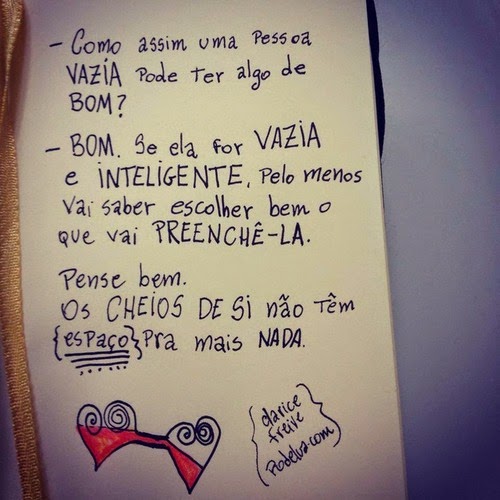 - Como assim uma pessoa
VAZIA pode ter algo de
BOM?
- BOM. Se ela for VAZIA
e INTELIGENTE, pelo menos
vai saber escolher bem o
que vai PREENCHÊ-LA.
Pense bem.
Os CHEIOS DE Si não têm
{espaço} pra mais NADA.
{clarice
freire
Podelua.com}